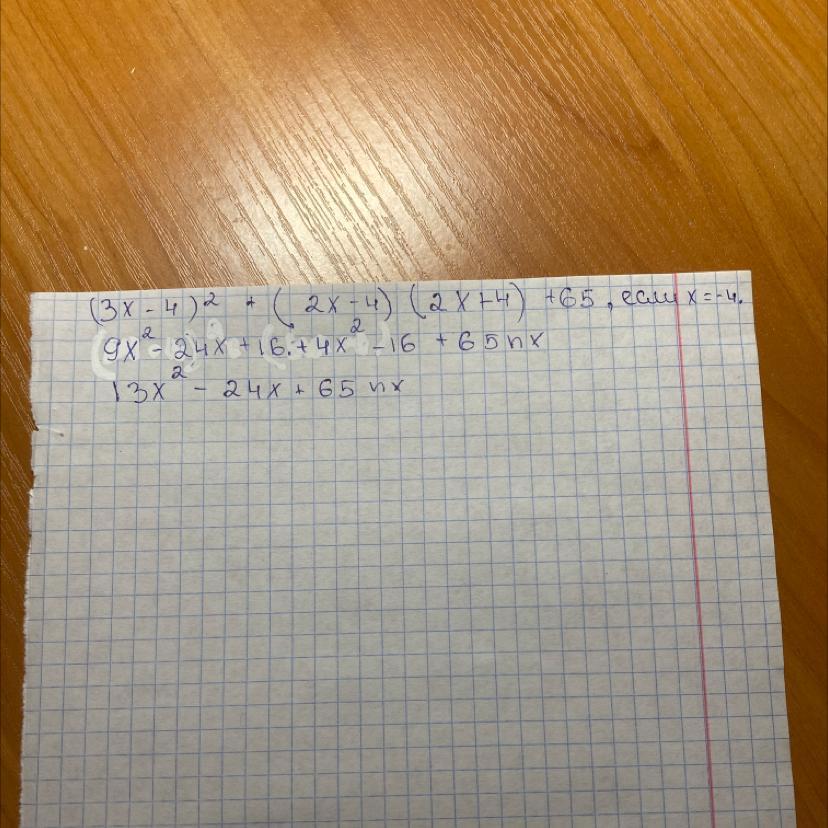 (3x - 4)² + (2x - 4) (2x + 4) + 65, если x = -4.
9x² - 24x + 16 + 4x² - 16 + 65nx
13x² - 24x + 65nx